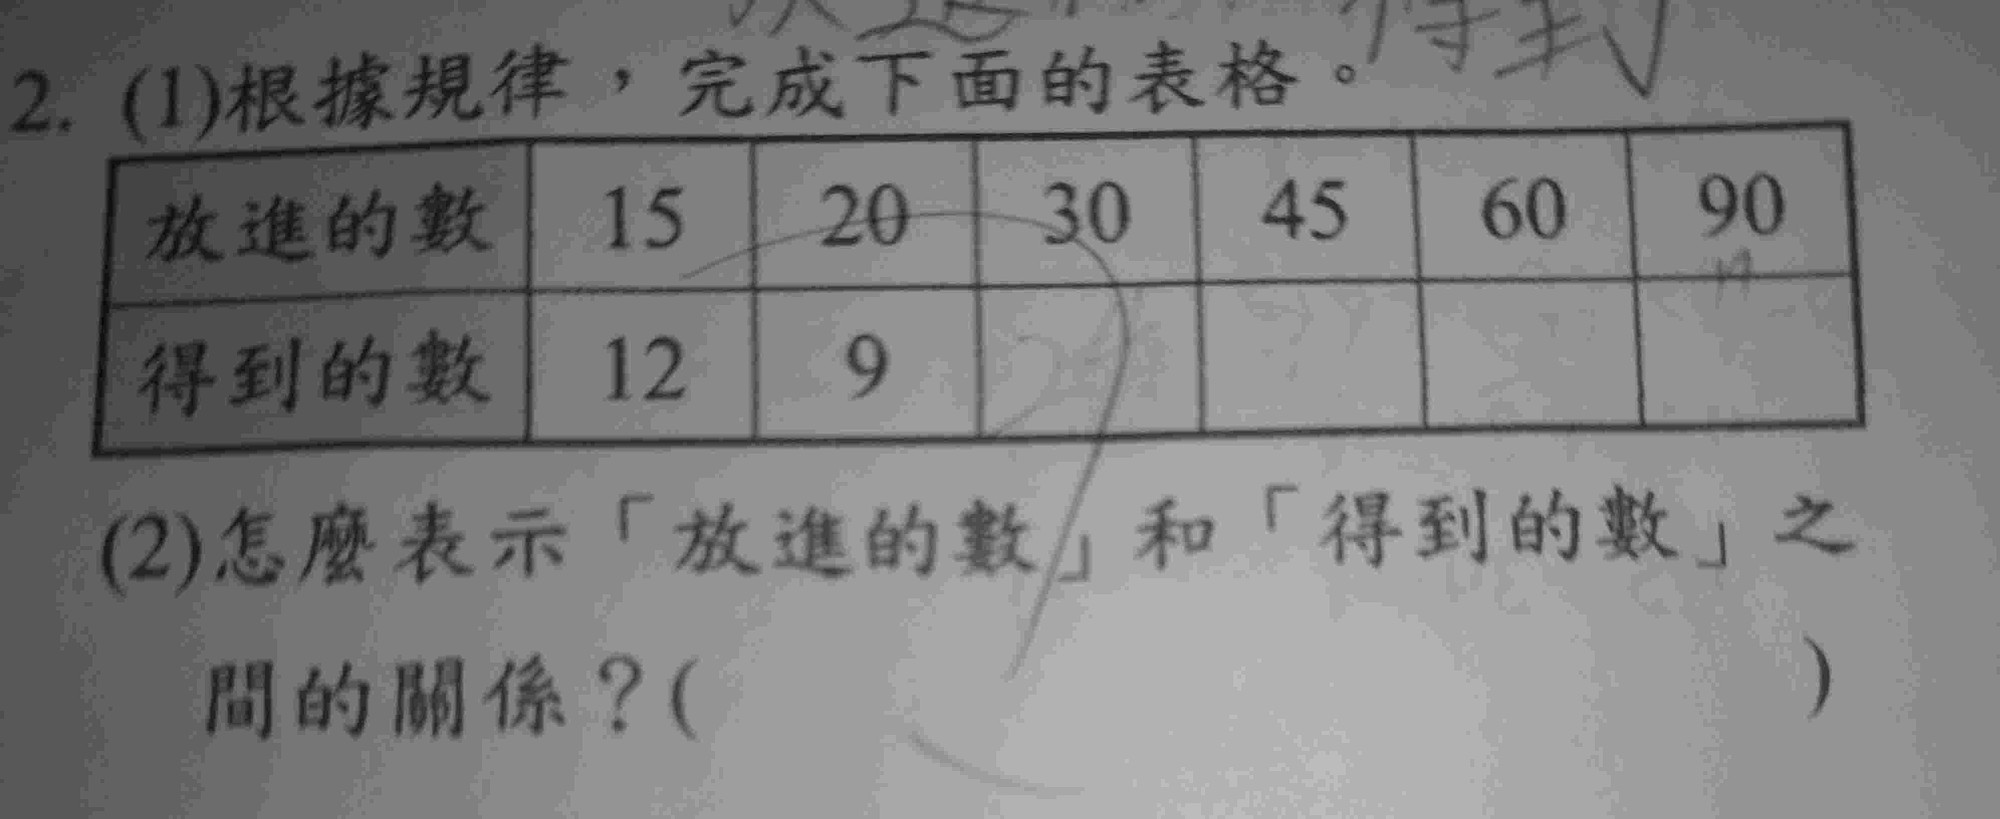 得到
2. (1)根據規律，完成下面的表格。
放進的數 15 20 30 45 60 90
得到的數 12 9
(2)怎麼表示「放進的數」和「得到的數」之
間的關係？( )